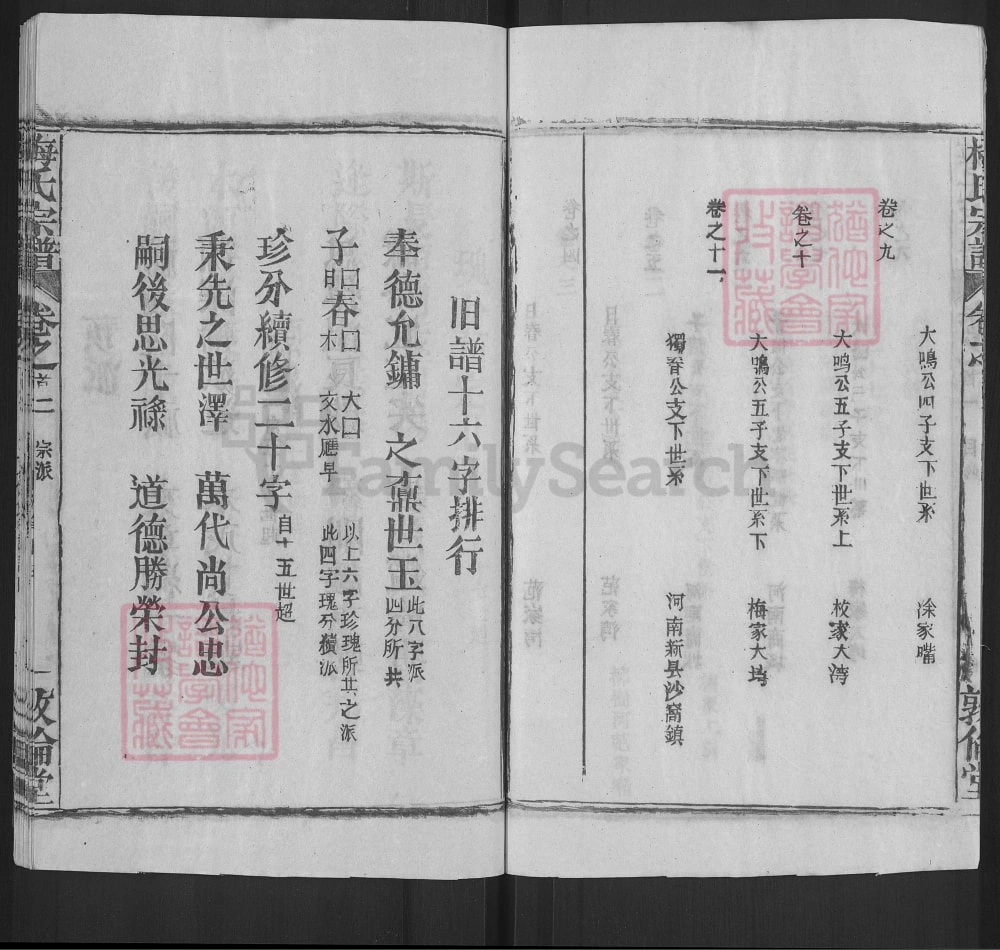 大鳴公四子支下世系
涂家嘴
卷之九
大鸣公五子支下世系上
大湾
卷之十
大鳴公五子支下世系下
梅家大垮
卷之十一
獨脊公支下世系
河南新县沙窩鎮
敦倫堂
旧譜十六字排行
奉德允鏞
之鼐世玉
此八字派
四分所共
子
春
大
文水應早
以上六字珍瑰所共之派
此四字瑰分續派
珍分續修二十字
自十五世超
秉先之世澤
萬代尚公忠
嗣後思光祿
道德勝榮封
梅氏宗譜
卷之首二
宗派
一
敦倫堂
FamilySearch